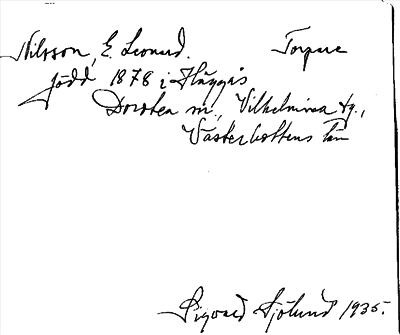 Nilsson, E. Leonard. Torpare
född 1878 i Häggås
Dorotea m., Vilhelmina tg.,
Västerbottens län
Sigvard Sjölund 1935.